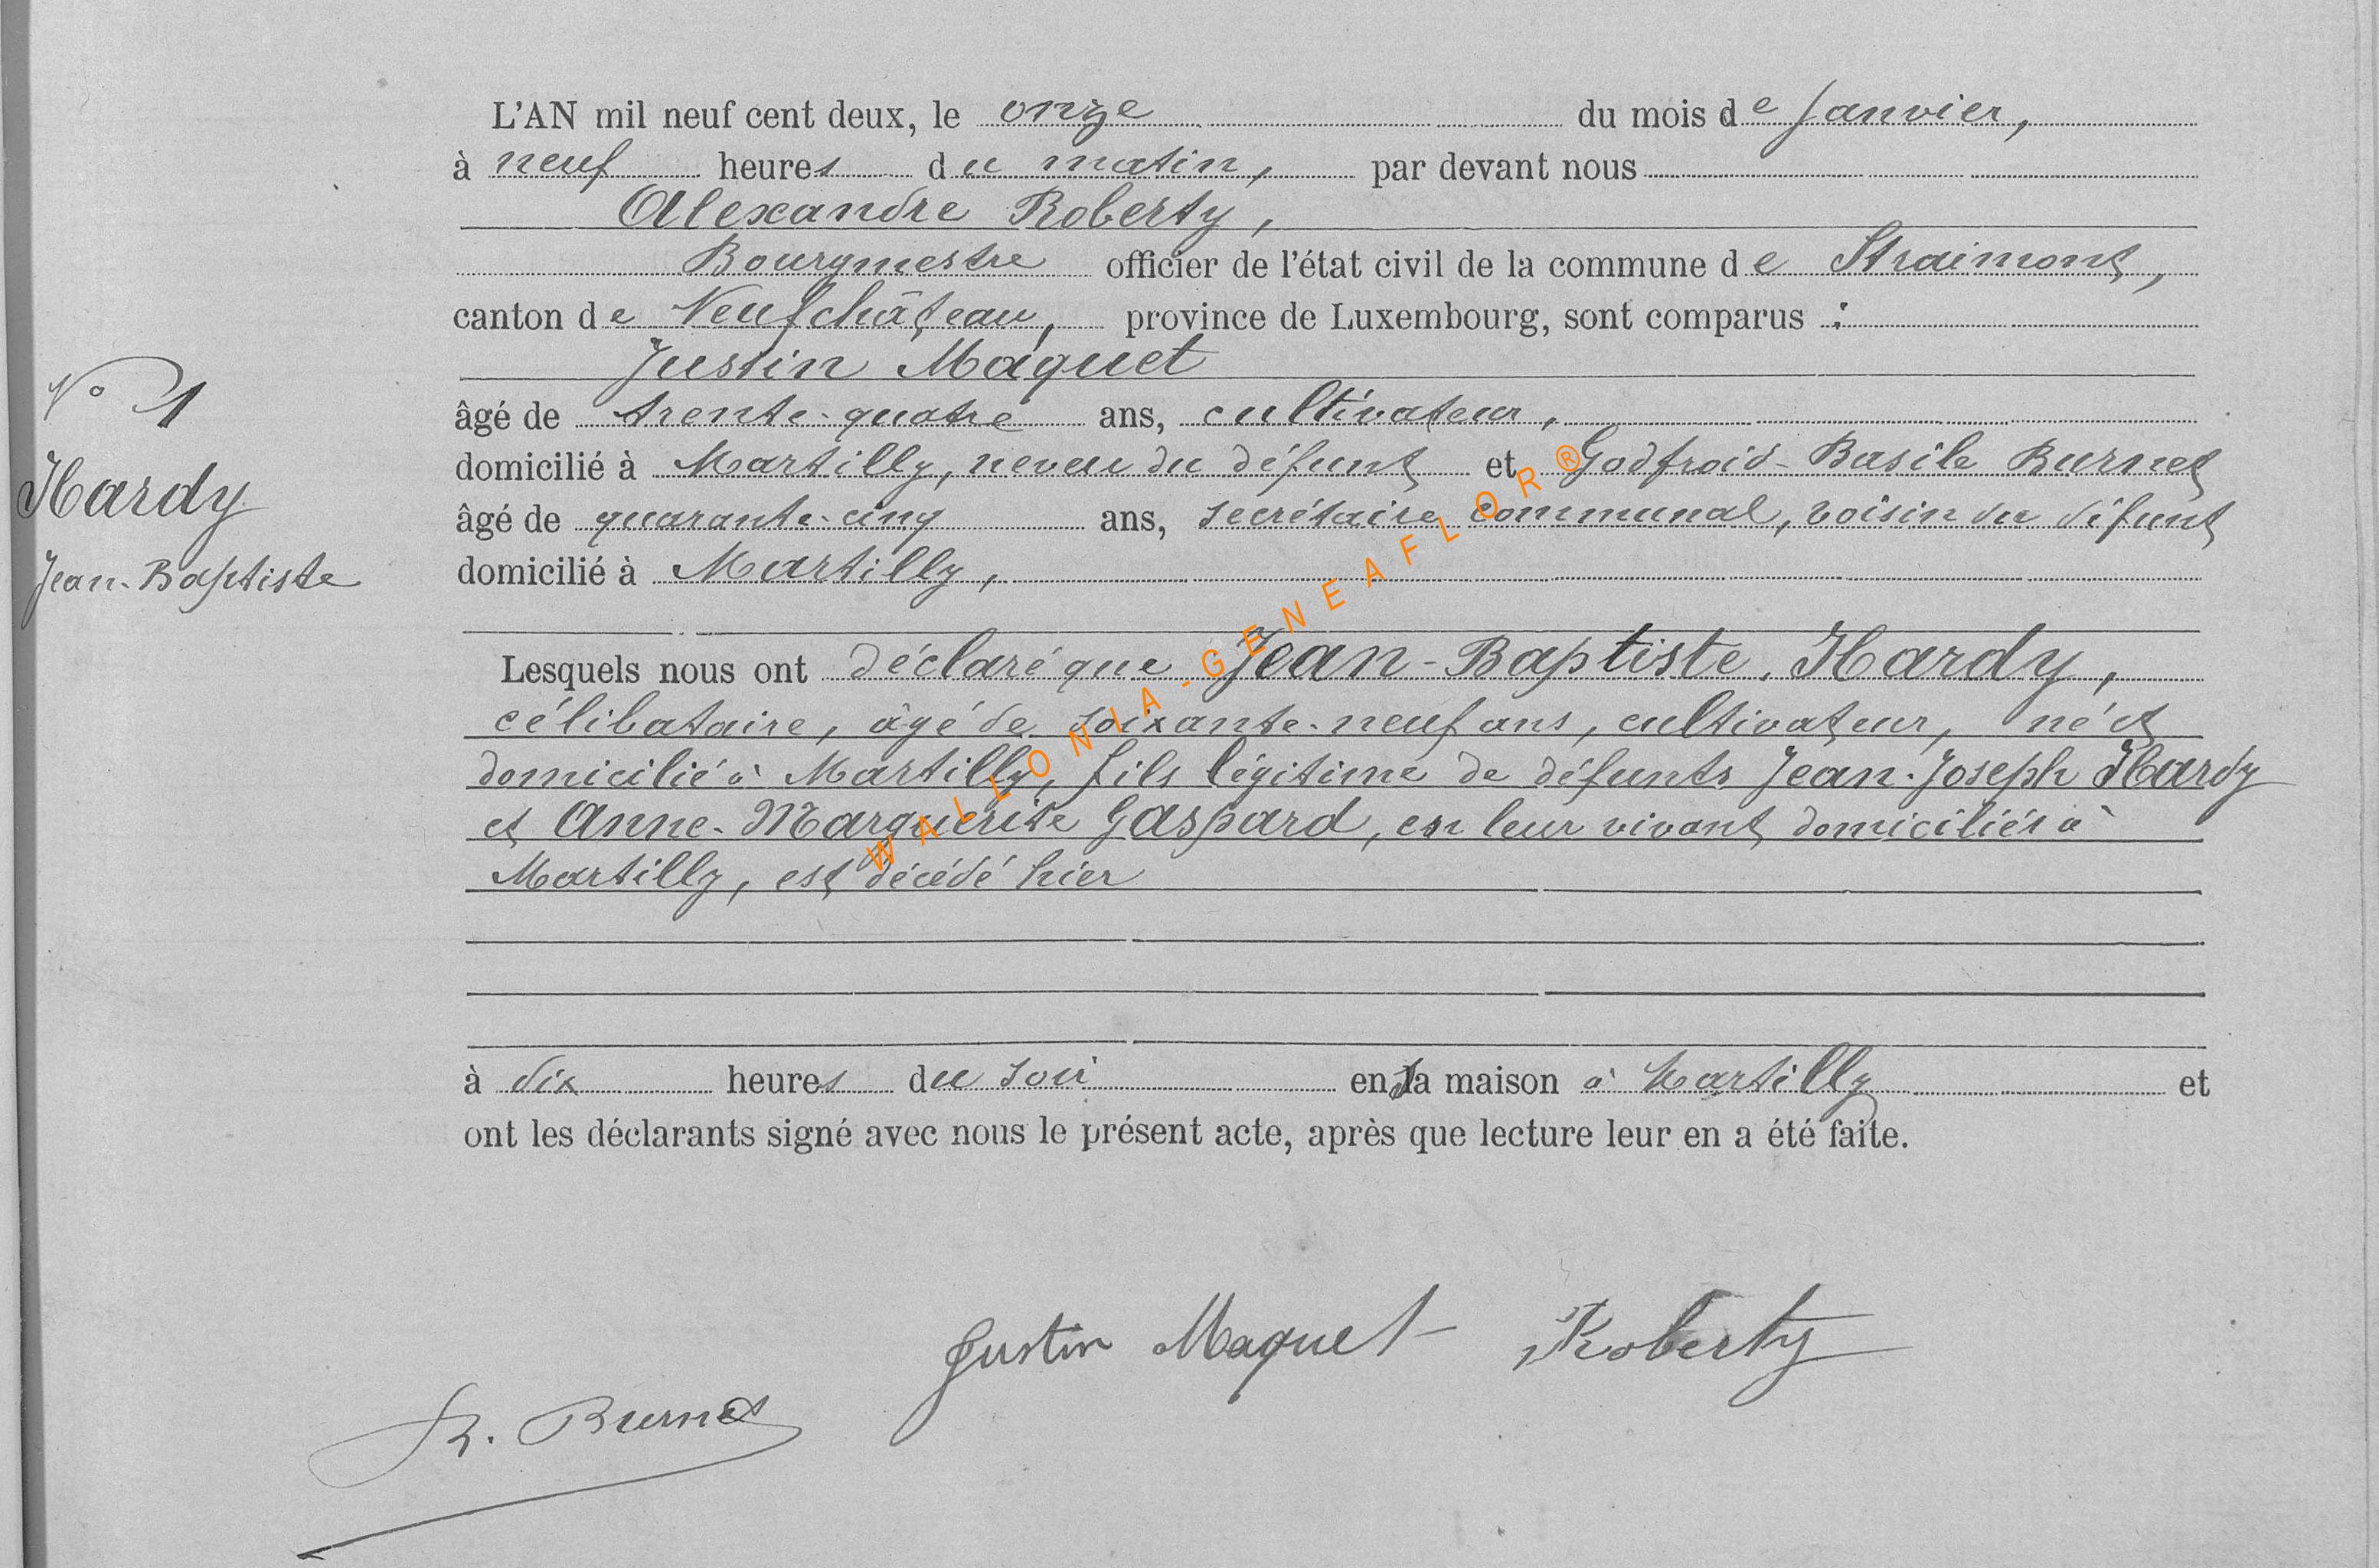 L'AN mil neuf cent deux, le onze du mois de Janvier,
à neuf heures du matin, par devant nous
Alexandre Roberty,
Bourgmestre officier de l'état civil de la commune de Straimont,
canton de Neufchâteau, province de Luxembourg, sont comparus :
Justin Maquet
âgé de trente-quatre ans, cultivateur,
domicilié à Martilly, neveu du défunt et Godfroid-Basile Burnet
âgé de quarante-cinq ans, secrétaire communal, voisin du défunt
domicilié à Martilly,
N° 1
Hardy
Jean-Baptiste
Lesquels nous ont déclaré que Jean-Baptiste, Hardy,
célibataire, âgé de soixante-neuf ans, cultivateur, né et
domicilié à Martilly, fils légitime de défunts Jean-Joseph Hardy
et Anne-Marguerite Gaspard, en leur vivant domiciliés à
Martilly, est décédé hier
à dix heures du soir en sa maison à Martilly et
ont les déclarants signé avec nous le présent acte, après que lecture leur en a été faite.
Justin Maquet Roberty
Burnet
WALLONIA-GENEAFLOR®